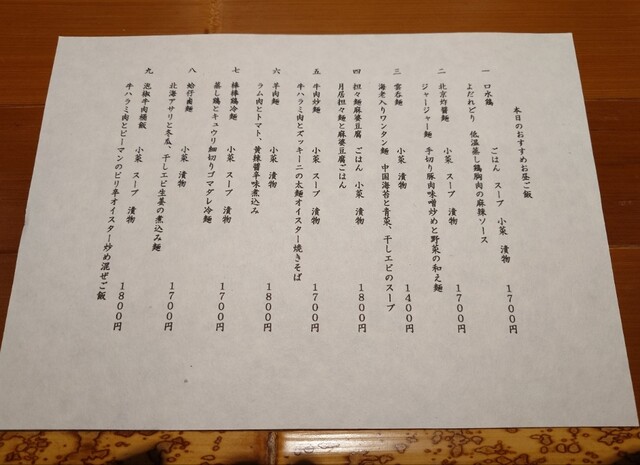 本日のおすすめお昼ご飯
一 口水鶏 ごはん スープ 小菜 漬物 1700円
よだれどり 低温蒸し鶏胸肉の麻辣ソース
二 北京炸醤麺 小菜 スープ 漬物 1700円
ジャージャー麺 手切り豚肉味噌炒めと野菜の和え麺
三 雲呑麺 小菜 漬物 1400円
海老入りワンタン麺 中国海苔と青菜、干しエビのスープ
四 担々麺麻婆豆腐 ごはん 小菜 漬物 1800円
月居担々麺と麻婆豆腐ごはん
五 牛肉炒麺 小菜 スープ 漬物 1700円
牛ハラミ肉とズッキーニの太麺オイスター焼きそば
六 羊肉麺 小菜 漬物 1800円
ラム肉とトマト、黄辣醤辛味煮込み
七 棒棒鶏冷麺 小菜 スープ 漬物 1700円
蒸し鶏とキュウリ細切りゴマダレ冷麺
八 蛤仔鹵麺 小菜 漬物 1700円
北海アサリと冬瓜、干しエビ生姜の煮込み麺
九 泡椒牛肉捅飯 小菜 スープ 漬物 1800円
牛ハラミ肉とピーマンのピリ辛オイスター炒め混ぜご飯